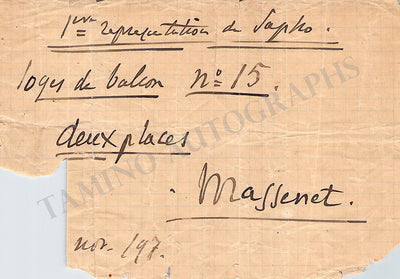 1ère représentation de Sapho.
loges de balcon nº 15.
deux places
Massenet.
nov. /97.
TAMINO AUTOGRAPHS